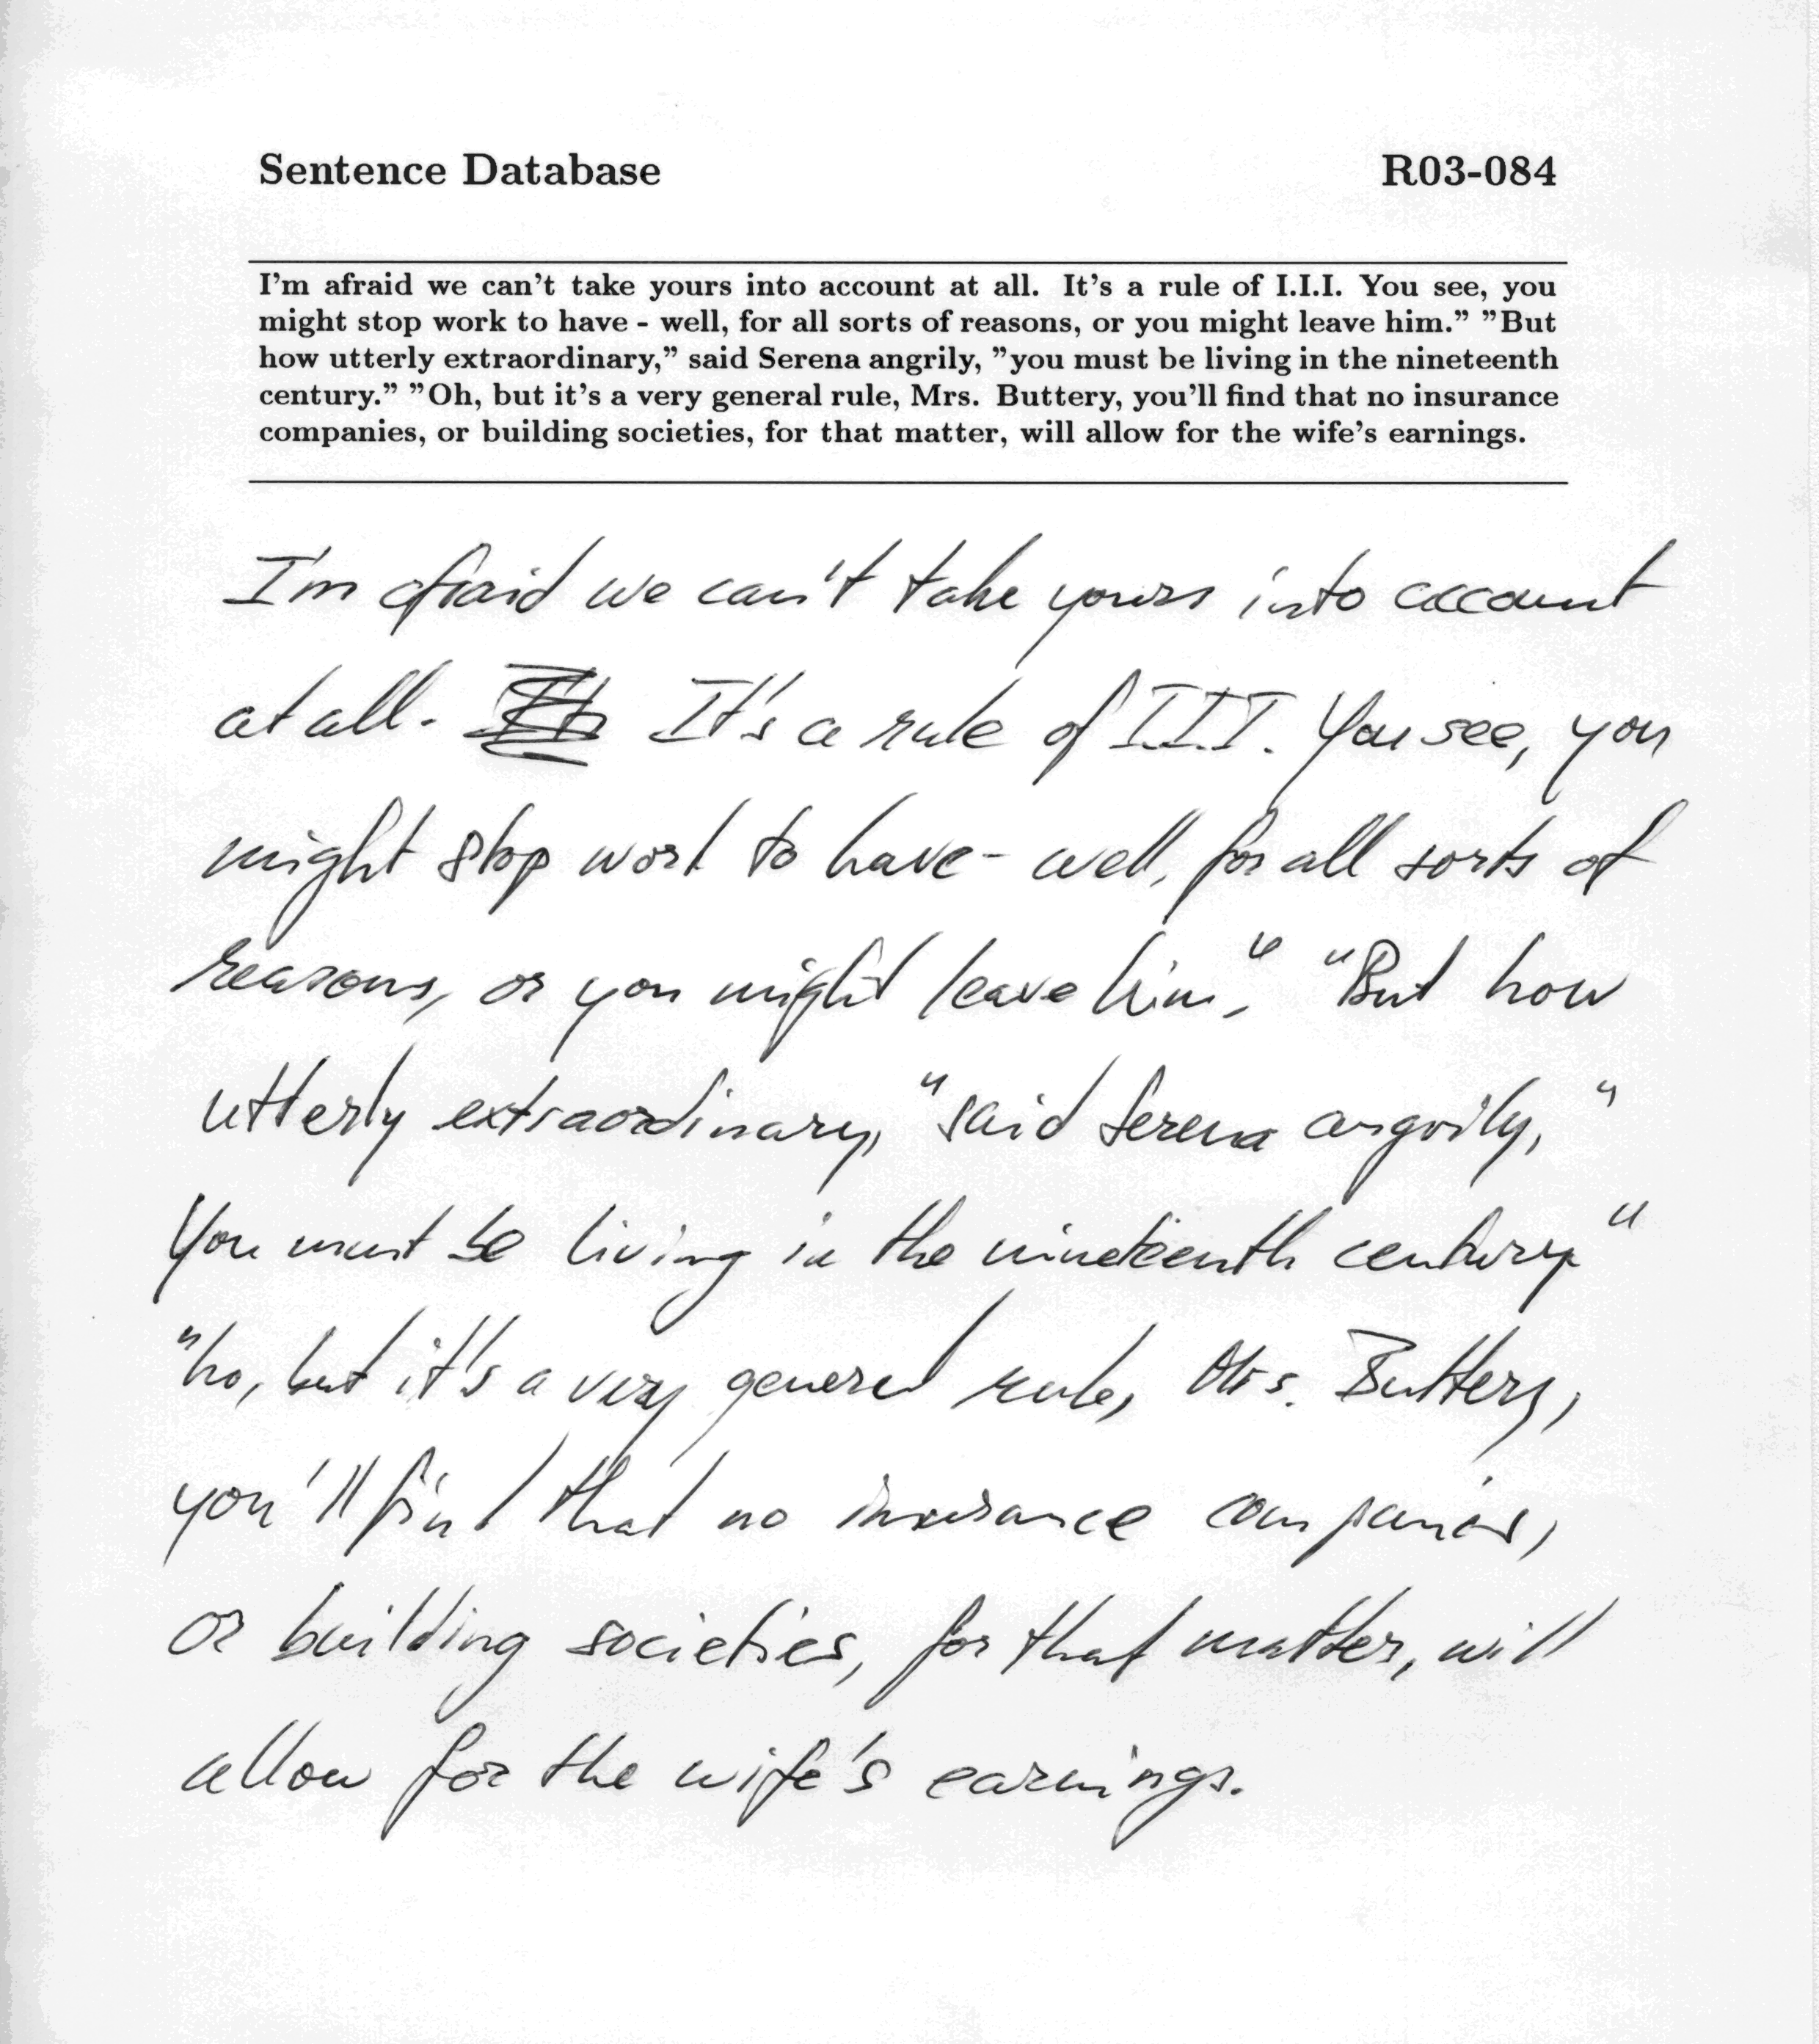 Sentence Database R03-084
I'm afraid we can't take yours into account at all. It's a rule of I.I.I. You see, you
might stop work to have - well, for all sorts of reasons, or you might leave him.” ”But
how utterly extraordinary,” said Serena angrily, ”you must be living in the nineteenth
century.” ”Oh, but it's a very general rule, Mrs. Buttery, you'll find that no insurance
companies, or building societies, for that matter, will allow for the wife's earnings.
I'm afraid we can't take yours into account
at all. It's a rule of I.I.I. You see, you
might stop work to have - well, for all sorts of
reasons, or you might leave him." "But how
utterly extraordinary," said Serena angrily, "
You must be living in the nineteenth century"
"ho, but it's a very general rule, Mrs. Buttery,
you'll find that no insurance companies,
or building societies, for that matter, will
allow for the wife's earnings.